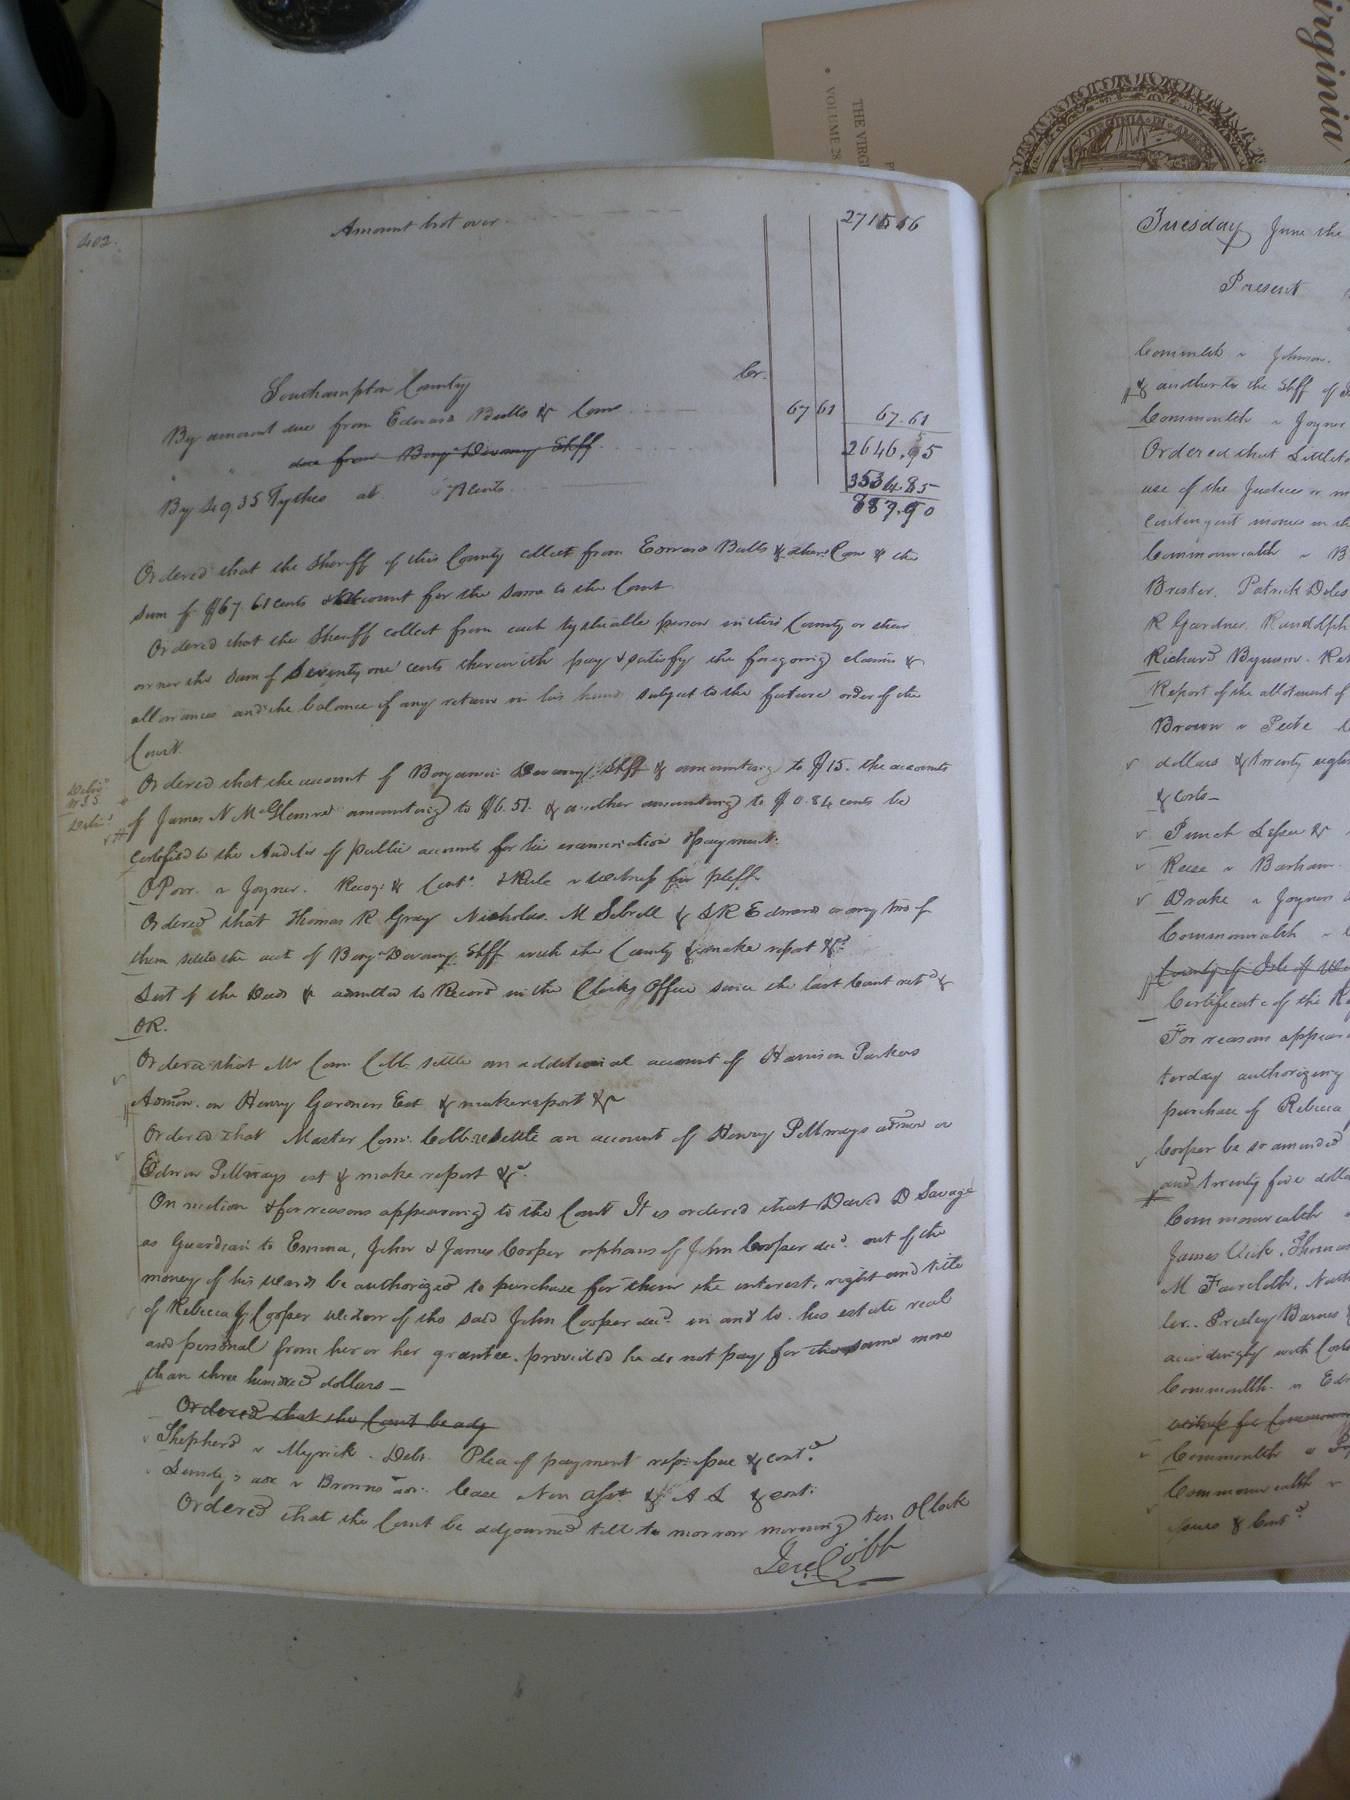 irginia
THE VIRG
VOLUME 28
VIRGINIA
402.
Amount brot over
Southampton County Cr.
By amount due from Edward Butts & Com 67 61 67.61
2646.95
due from Benj. Devany Shff
By 4935 Tythes at 71 cents 3534.85
887.90
Ordered that the Sheriff of this County collect from Edward Butts & other Com & the
sum of $67.61 cents & account for the same to the Court
Ordered that the Sheriff collect from each tythable person in this County or their
owner the sum of Seventy one cents therewith pay & satisfy the foregoing claims &
allowances and the balance if any retain in his hand subject to the future order of the
Court.
Ordered that the account of Benjamin Devany Shff & amounting to $15. the accounts
of James N McGlemre amounting to $6.51. & another amounting to $0.84 cents be
certified to the Auditor of public accounts for his examination & payment.
Joyner. Recog. & Cont.d & Rule witness for pltff.
Ordered that Thomas R Gray Nicholas M Sebrell & S R Edwards or any two of
them settle the acct of Benj.n Devany Shff with the County & make report &c
List of the Deeds & admitted to Record in the Clerks Office since the last Court ret.d &
OR.
Ordered that Mr Com. Cobb settle an additional account of Harrison Parkers
Admon. on Henry Gardners Est & make report &c
Ordered that Master Com. Cobb resettle an account of Henry Pillmays admon on
Edwin Pillmays est & make report &c.
On motion & for reasons appearing to the Court It is ordered that David D Savage
as Guardian to Emma, John & James Cooper orphans of John Cooper dec.d out of the
money of his wards be authorized to purchase for them the interest, right and title
of Rebecca Cooper widow of the said John Cooper dec.d in and to his estate real
and personal from her or her grantee. provided he do not pay for the same more
than three hundred dollars —
Ordered that the Court be adj
Shepherd v Myrick. Debt. Plea of payment repl. issue & cont.d
v Browns adr. Case Non asst & A L & cont.
Ordered that the Court be adjourned till to morrow morning ten OClock
Jere Cobb
Tuesday June the
Present
Commlth v Johnson.
& another to the Shff of
Commonlth v Joyner
Ordered that Littleto
use of the Justices
contingent monies in th
Commonwealth v B
Brister. Patrick Doles
R Gardner. Randolph
Richard Bynum.
Report of the allotment of
Brown v Peete
dollars & twenty eight
& costs —
Punch
Reese v Barham.
Drake v Joyners
Commonwealth v
County of Isle of W
Certificate of the R
For reasons appeari
terday authorizing
purchase of Rebecca
Cooper be so amended
and twenty five dolla
Commonwealth
James Vick. Thomas
M Faircloth.
ler. Presley Barnes
accordingly with Costs
Commonlth. v Ed
witness for Common
Commonwlth v
Commonwealth v
issues & Cont.d